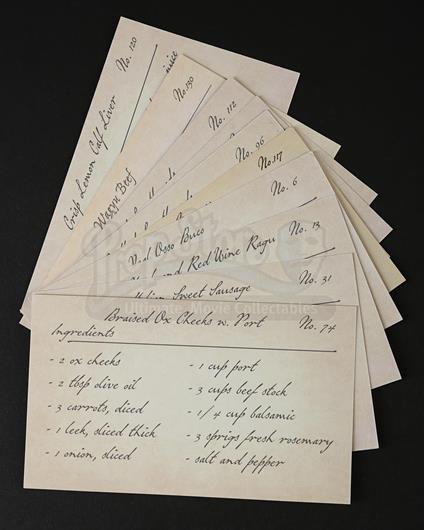 No. 120
Crisp Lemon Calf Liver
No. 130
Wagyu Beef
No. 112
No. 96
No. 117
No. 6
Veal Osso Buco
No. 13
and Red Wine Ragu
No. 31
Sweet Sausage
Braised Ox Cheeks w. Port
No. 74
Ingredients
- 2 ox cheeks
- 2 tbsp olive oil
- 3 carrots, diced
- 1 leek, sliced thick
- 1 onion, sliced
- 1 cup port
- 3 cups beef stock
- 1/4 cup balsamic
- 3 sprigs fresh rosemary
- salt and pepper